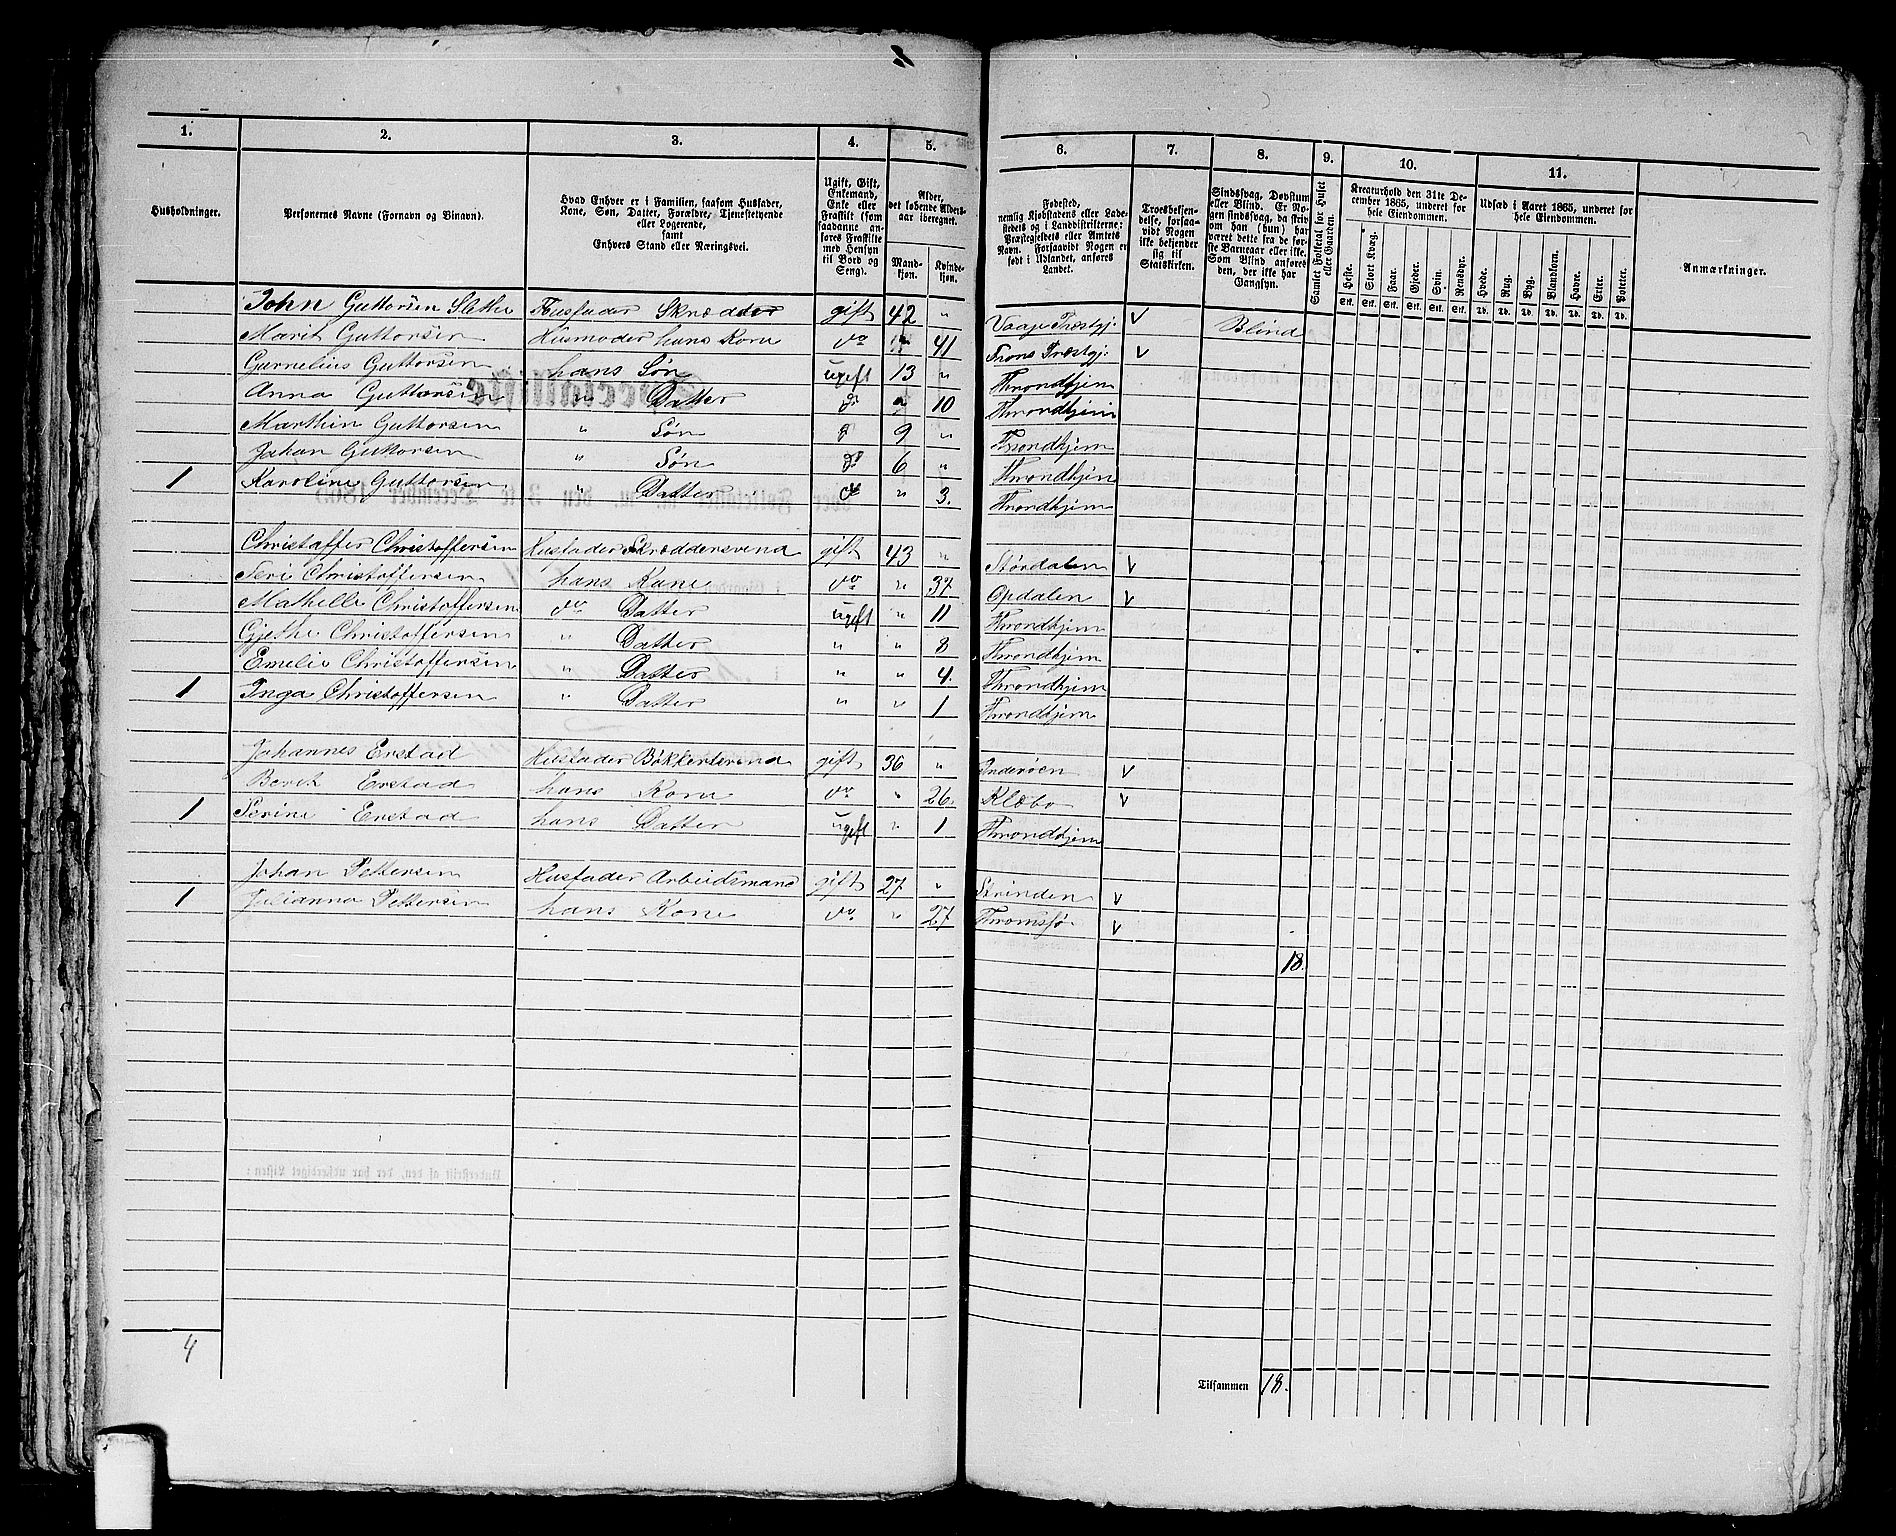 1. 2. 3. 4. 5. 6. 7. 8. 9. 10. 11.
Husholdninger.
Personernes Navne (Fornavn og Binavn).
Hvad Enhver er i Familien, saasom Husfader,
Kone, Søn, Datter, Forældre, Tjenestetyende
eller Logerende,
samt
Enhvers Stand eller Næringsvei.
Ugift, Gift,
Enkemand,
Enke eller
Fraskilt (som
saadanne an-
føres Fraskilte
med Hensyn
til Bord og
Seng).
Alder,
det løbende Alders-
aar iberegnet.
Mand-
kjøn.
Kvinde-
kjøn.
Fødested,
nemlig Kjøbstadens eller Lade-
stedets og i Landdistrikterne:
Præstegjeldets eller Amtets
Navn. Forsaavidt Nogen er
født i Udlandet, anføres
Landet.
Troesbekjen-
delse, forsaa-
vidt Nogen
ikke bekjender
sig til
Statskirken.
Sindssvag, Døvstum
eller Blind. Er No-
gen sindssvag, da skriv
om han (hun) har
været dette fra de før-
ste Barneaar eller ikke.
Som Blind anføres
den, der ikke har
Gangsyn.
Samlet Folketal for Huset
eller Gaarden.
Kreaturhold den 31te De-
cember 1865, underet for
hele Eiendommen.
Heste. Stort Kvæg. Faar. Gjeder. Svin. Rensdyr.
Stk. Stk. Stk. Stk. Stk. Stk.
Udsæd i Aaret 1865, underet for
hele Eiendommen.
Hvede. Rug. Byg. Blandkorn. Havre. Erter. Poteter.
Td. Td. Td. Td. Td. Td. Td.
Anmærkninger.
John Guttorsen Slethe Husfader Skrædder gift 42 " Vaage Præstgj: V Blind
Marit Guttorsen Husmoder hans Kone do " 41 Frons Præstgj: V
Gurnelius Guttorsen hans Søn ugift 13 " Throndhjem
Anna Guttorsen " Datter do " 10 Throndhjem
Marthin Guttorsen " Søn do 9 " Throndhjem
Johan Guttorsen " Søn do 6 " Throndhjem
1 Karoline Guttorsen " Datter do " 3. Throndhjem
Christoffer Christoffersen Husfader Skræddersvend gift 43 " Størdalen V
Seri Christoffersen hans Kone do " 37 Opdalen V
Mathelle Christoffersen do Datter ugift " 11 Throndhjem
Gjethe Christoffersen " Datter " " 8 Throndhjem
Emelie Christoffersen " Datter " " 4. Throndhjem
1 Inga Christoffersen " Datter " " 1 Throndhjem
Johannes Erstad Husfader Bøkkersvend gift 36 " Inderøen V
Berit Erstad hans Kone do " 26. Klæbo V
1 Perine Erstad hans Datter ugift " 1 Throndhjem
Johan Pettersen Husfader Arbeidsmand gift 27 " Strinden V
1 Julianna Pettersen hans Kone do " 27 Thromsø V
18.
4 Tilsammen 18.